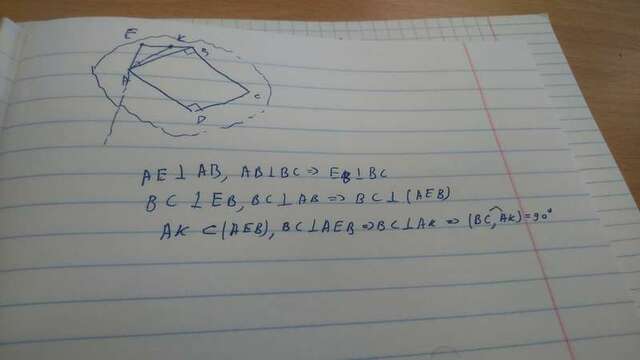 E K B
A
C
D
AE ⊥ AB, AB ⊥ BC ⇒ EB ⊥ BC
BC ⊥ EB, BC ⊥ AB ⇒ BC ⊥ (AEB)
AK ⊂ (AEB), BC ⊥ AEB ⇒ BC ⊥ AK ⇒ (BC, AK) = 90°